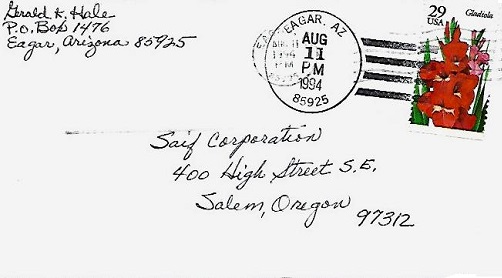 Gerald K. Hale
P.O. Box 1476
Eagar, Arizona 85925
EAGAR, AZ
AUG
11
PM
1994
85925
29
USA
Gladiola
Saif Corporation
400 High Street S.E.
Salem, Oregon
97312